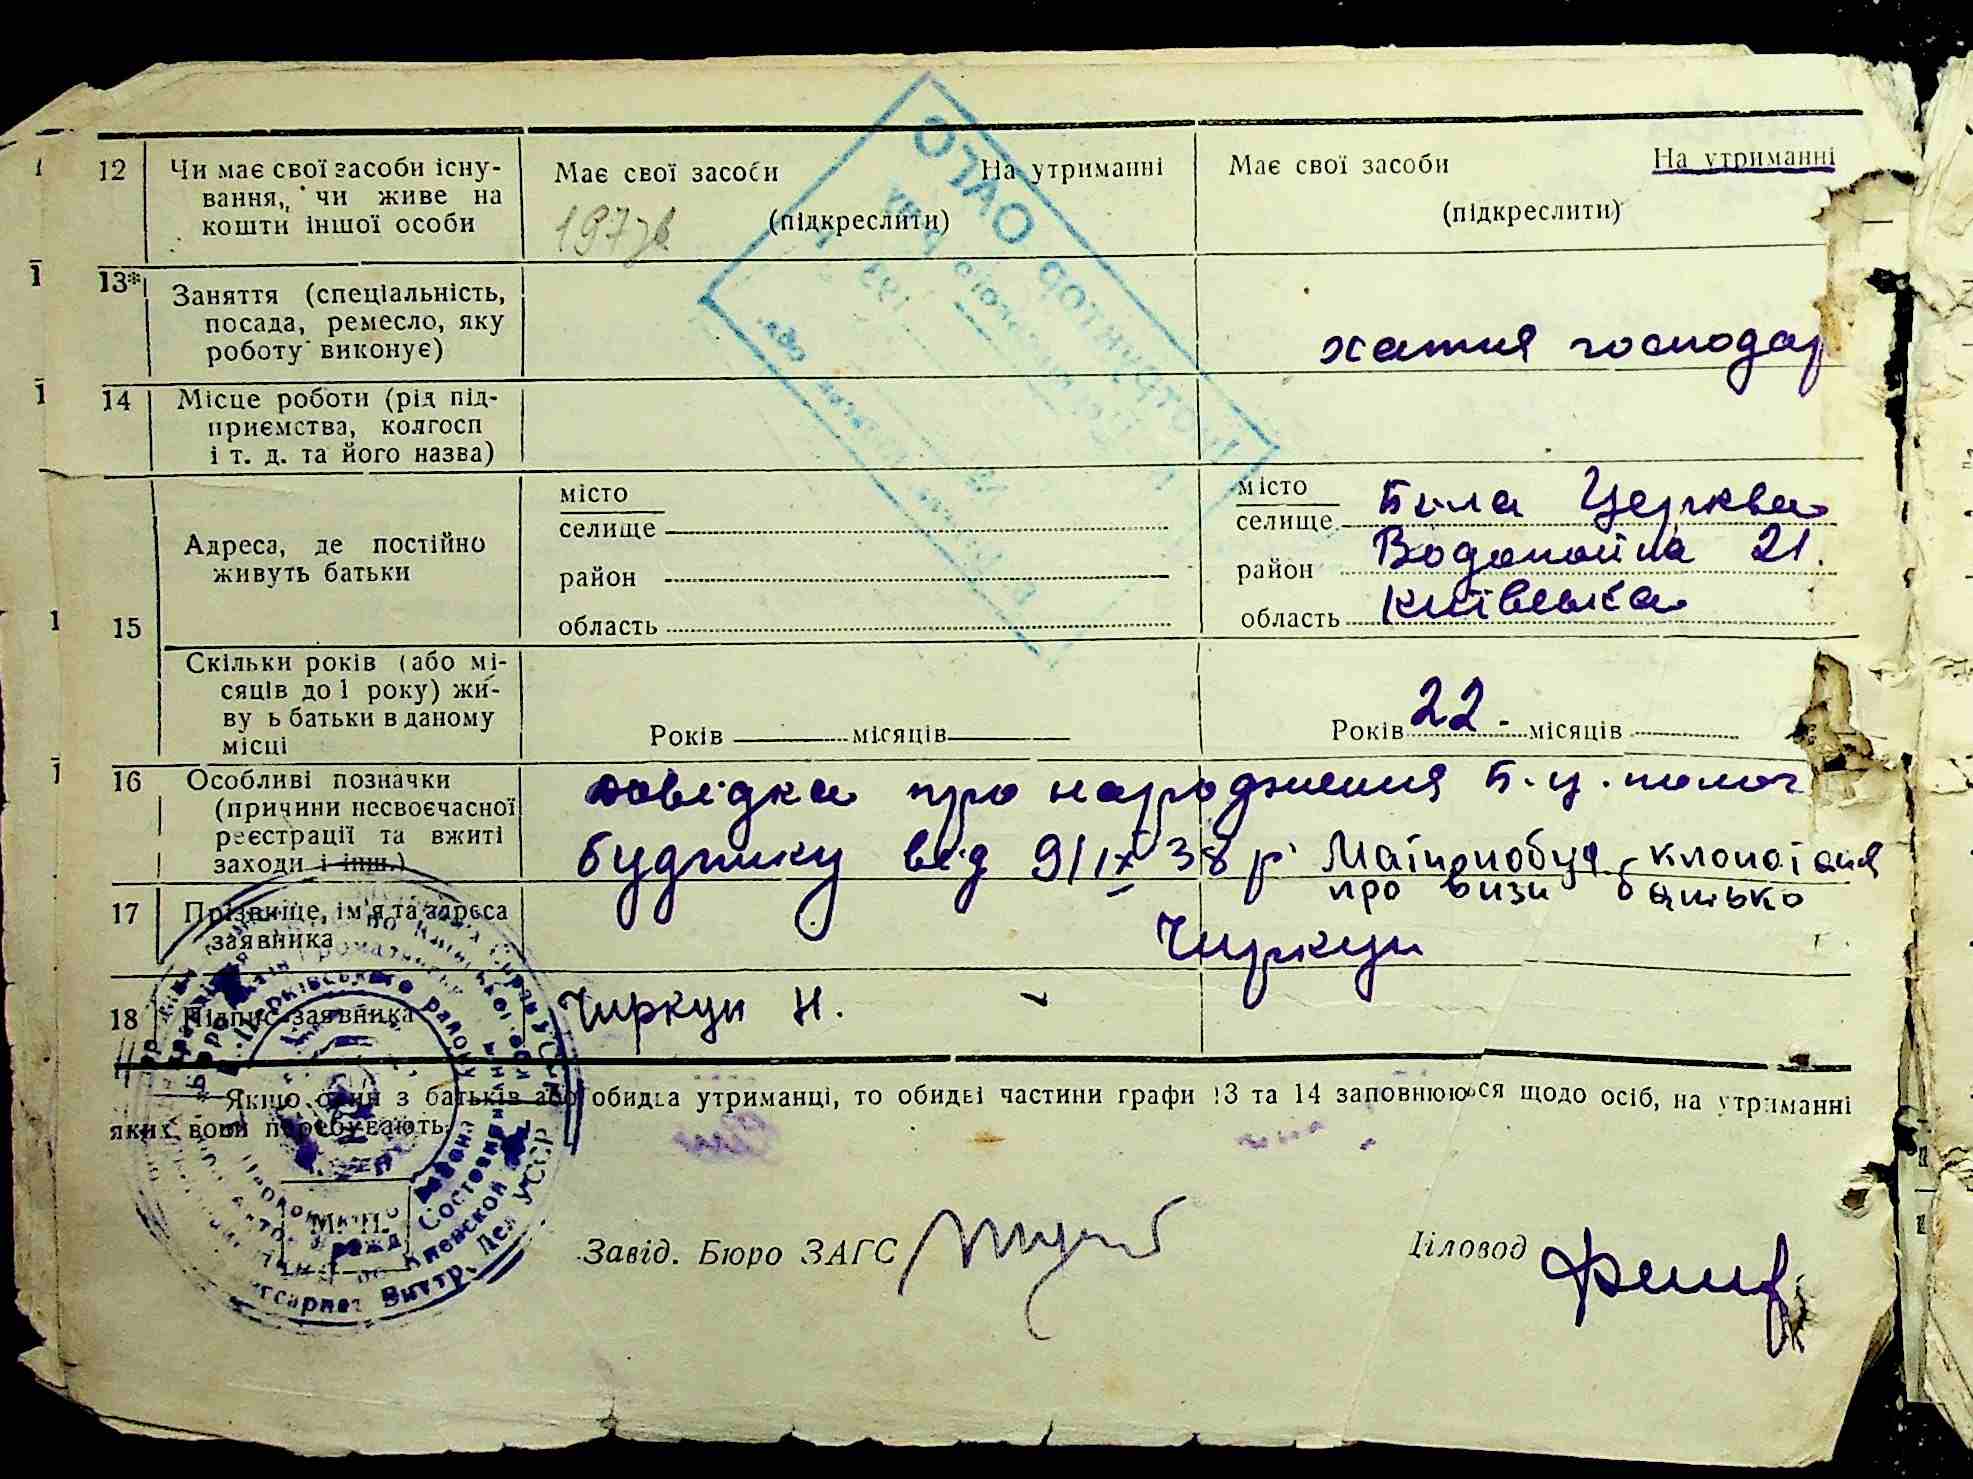 12 Чи має свої засоби існу-
вання, чи живе на
кошти іншої особи
Має свої засоби На утриманні
(підкреслити)
197зв
Має свої засоби На утриманні
(підкреслити)
13* Заняття (спеціальність,
посада, ремесло, яку
роботу виконує)
хатня господар
14 Місце роботи (рід під-
приємства, колгосп
і т. д. та його назва)
15 Адреса, де постійно
живуть батьки
місто
селище
район
область
місто
селище Біла Церква
район Водопойна 21.
область Київська
Скільки років (або мі-
сяців до 1 року) жи-
ву ь батьки в даному
місці
Років місяців
Років 22 місяців
16 Особливі позначки
(причини несвоєчасної
реєстрації та вжиті
заходи і інш.)
довідка про народження Б.ц. полог
будинку від 9/IX 38 р
про визи батько
17 Прізвище, ім'я та адреса
заявника
Чиркун
18 Підпис заявника
Чиркун Н.
Якщо один з батьків або обидва утриманці, то обидві частини графи 13 та 14 заповнюються щодо осіб, на утриманні
яких вони перебувають.
М. П.
Завід. Бюро ЗАГС
Діловод